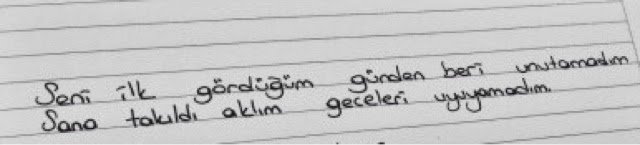 Seni ilk gördüğüm günden beri unutamadım
Sana takıldı aklım geceleri uyuyamadım.